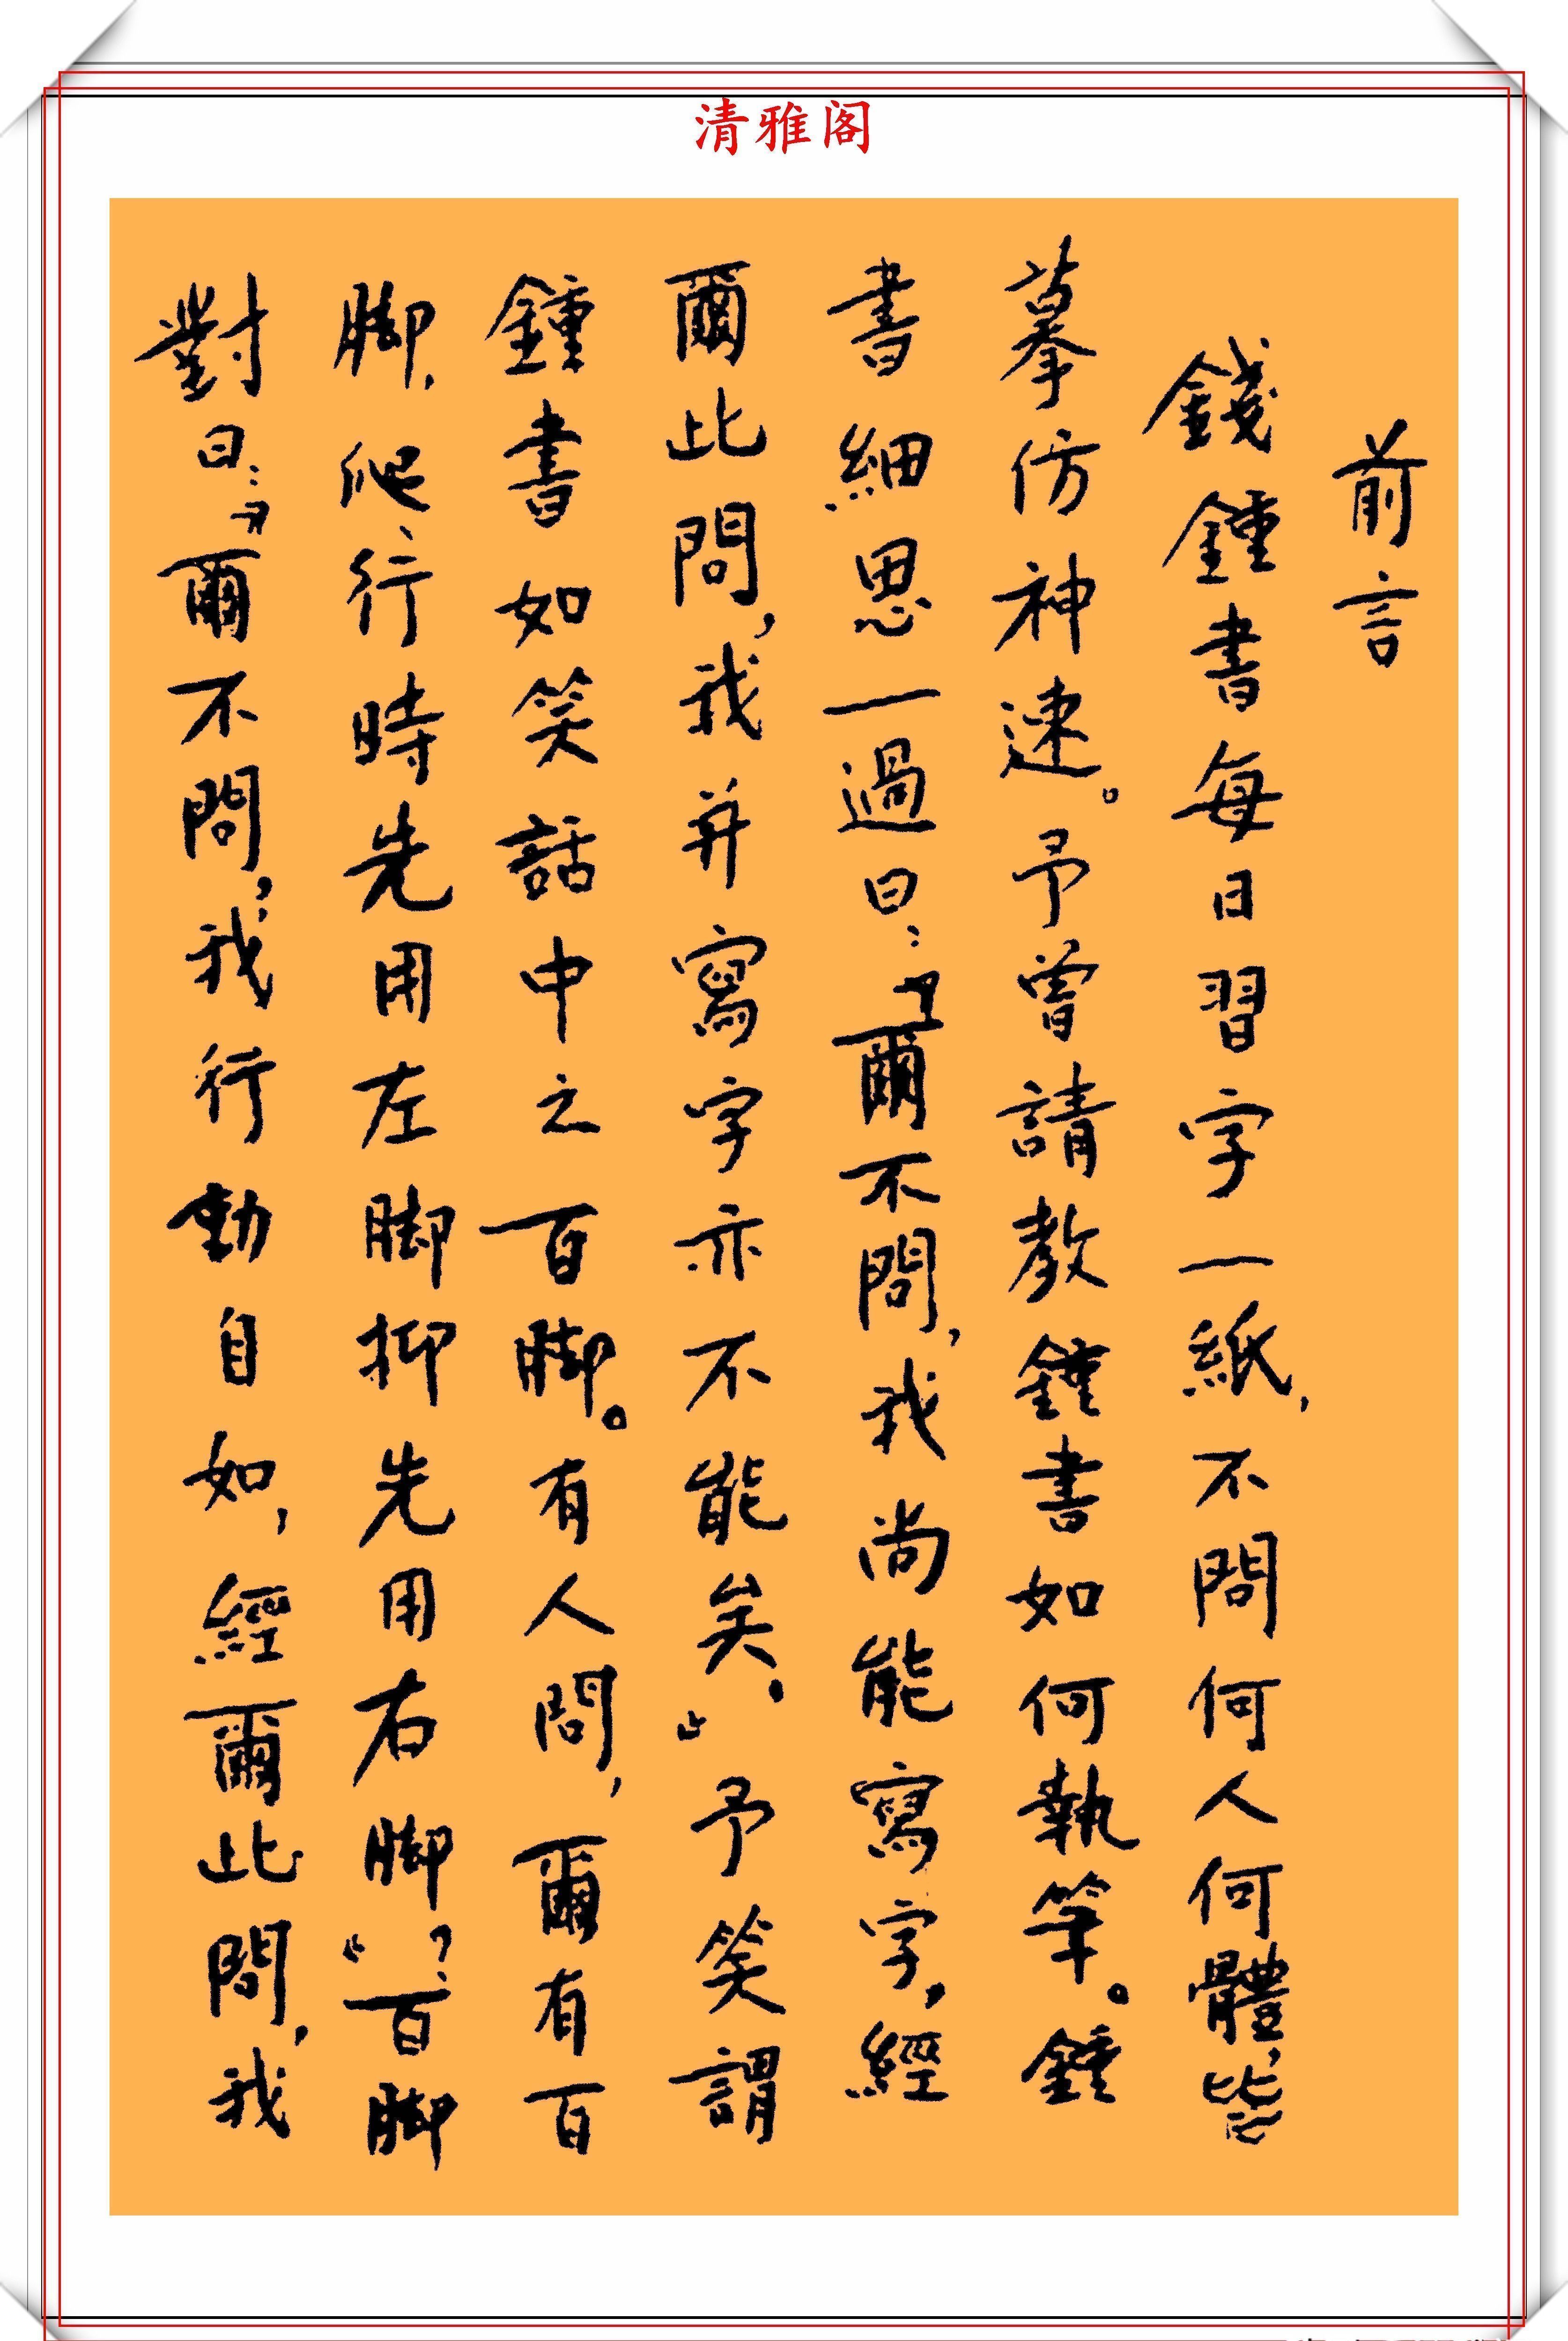 清雅阁
前言
錢鍾書每日習字一紙，不問何人何體，皆
摹仿神速。予曾請教鍾書如何執筆。鍾
書細思一過曰：“爾不問，我尚能寫字，經
爾此問，我并寫字亦不能矣。”予笑謂
鍾書如笑話中之百腳。有人問，爾有百
脚，爬行時先用左脚抑先用右脚？”百脚
對曰：“爾不問，我行動自如，經爾此問，我